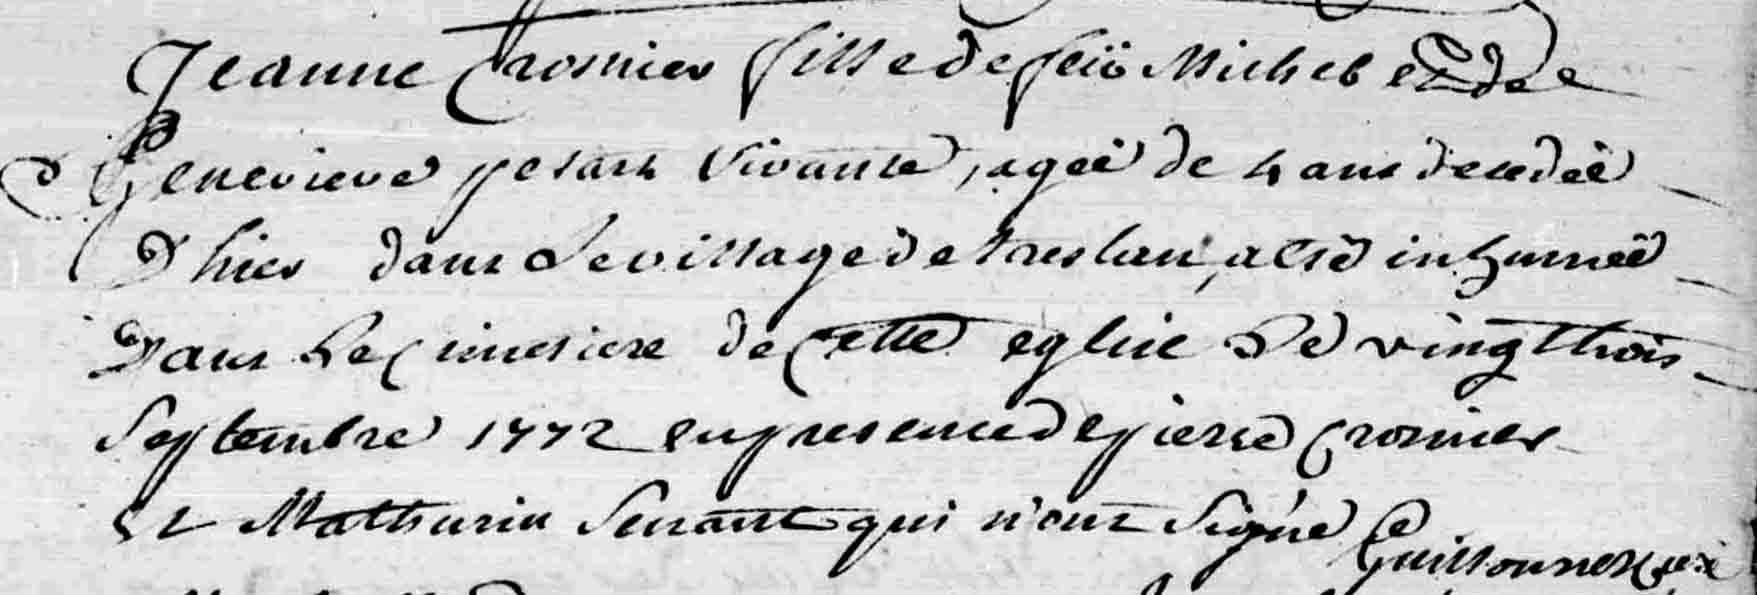 Jeanne Crosnier fille de feü Michel et de
Genevieve pesart vivante, ageé de 4 ans decedeé
D'hier dans Le village de treslan, a esté inhumeé
Dans Le cimetiere de cette eglise Le vingt trois
Septembre 1772 en presence de pierre Crosnier
et Mathurin Senant qui n'ont Signé Guillonnet